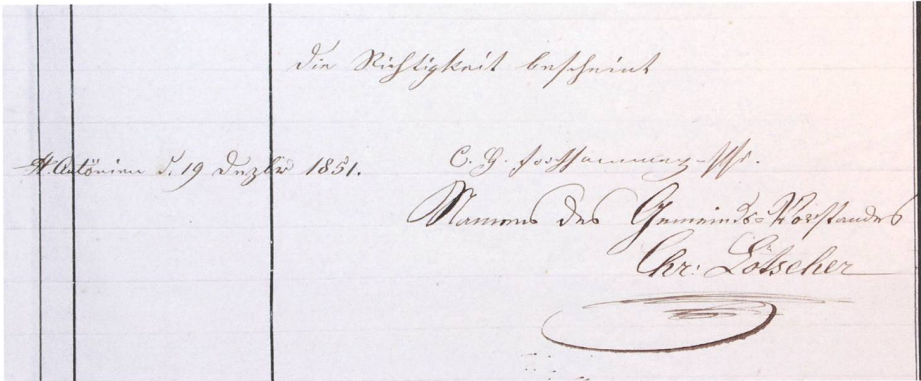 Die Richtigkeit bescheint
St. Antönien d. 19 Dezbr 1851.
C. G.
Namens des Gemeinds-Vorstandes
Chr: Lötscher